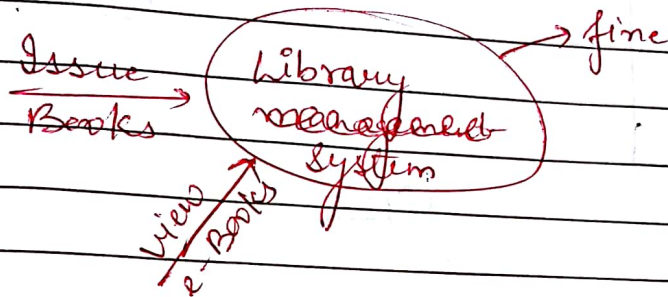 fine
Issue
Books
Library
management
system
View
e-Books